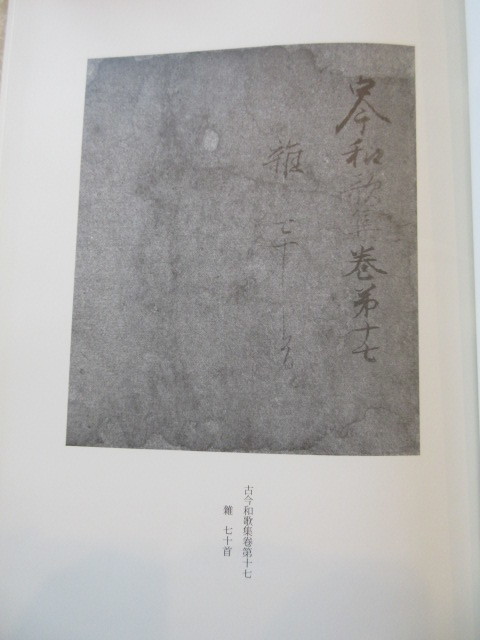 古今和歌集巻第十七
雑 七十首
古今和歌集巻第十七
雑 七十首